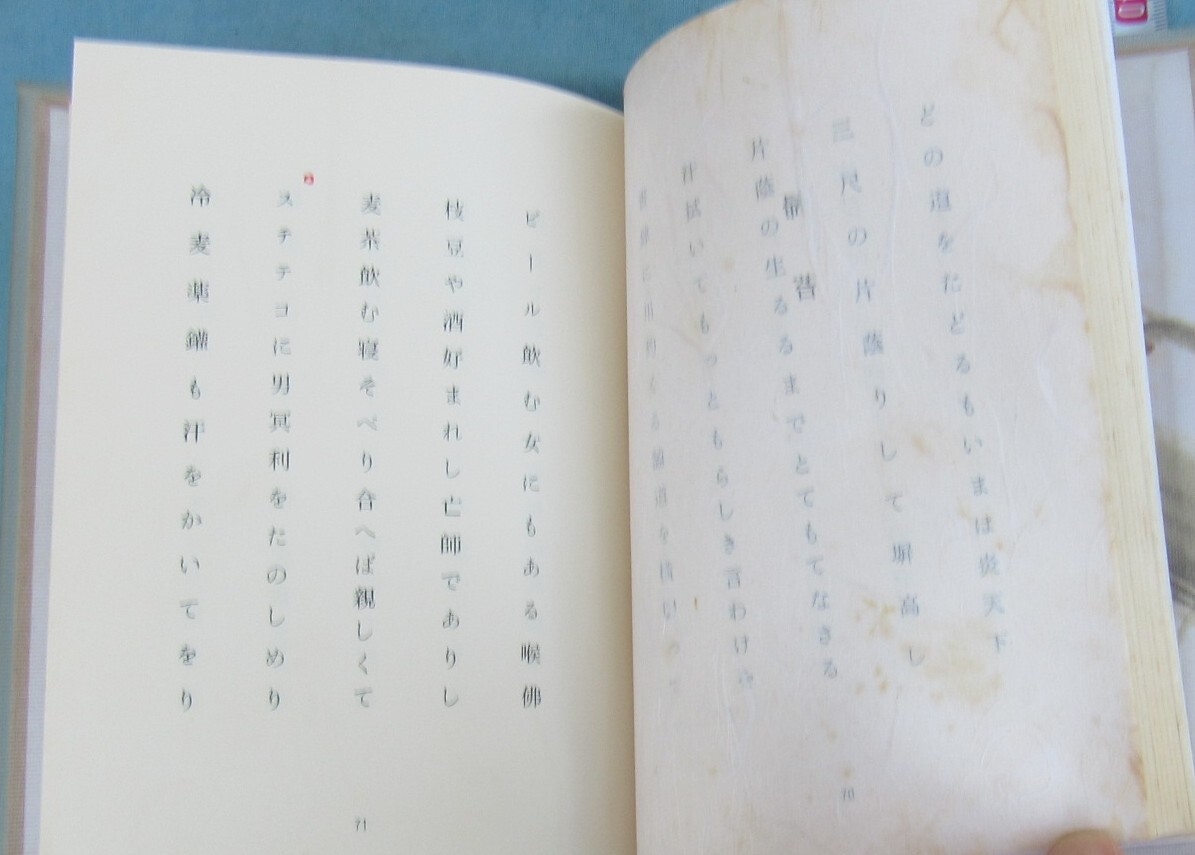 どの道をたどるもいまは炎天下
三尺の片蔭りして塀高し
片蔭の生るるまでとてもてなさる
汗拭いてもっともらしき言わけや
70
ビール飲む女にもある喉佛
枝豆や酒好まれし亡師でありし
麦茶飲む寝そべり合へば親しくて
ステテコに男冥利をたのしめり
冷麦薬鑵も汗をかいてをり
71